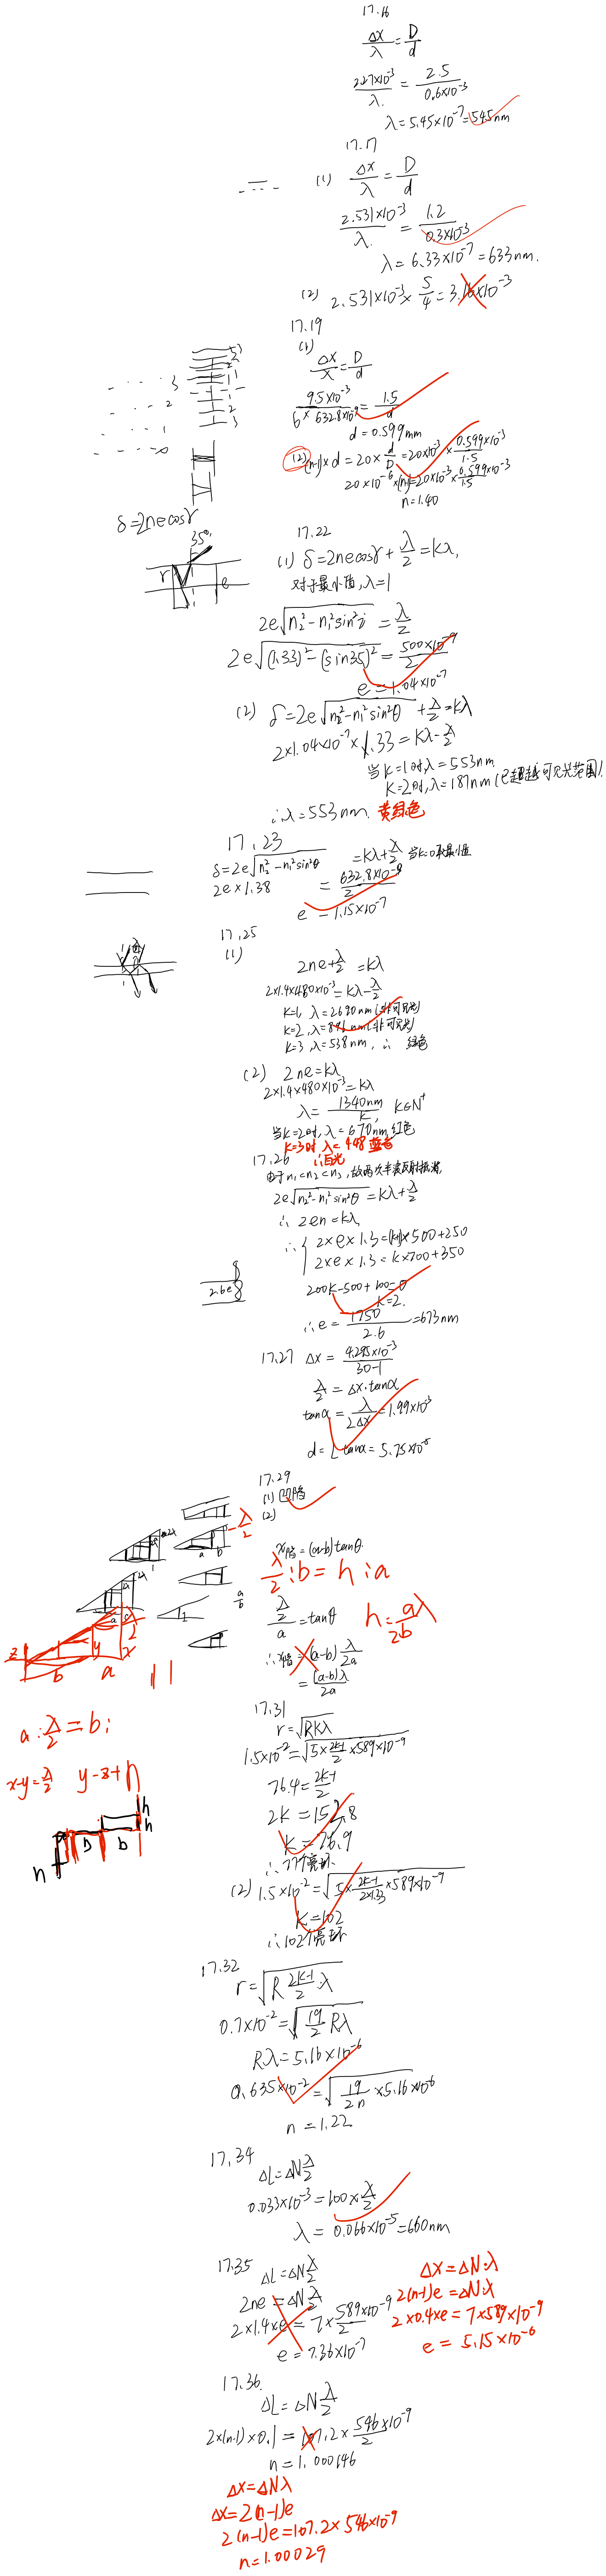 17.16
Δx/λ = D/d
2.27×10⁻³/λ = 2.5/0.6×10⁻³
λ = 5.45×10⁻⁷ = 545nm
17.17
(1) Δx/λ = D/d
2.531×10⁻³/λ = 1.2/0.3×10⁻³
λ = 6.33×10⁻⁷ = 633nm.
(2) 2.531×10⁻³ × 5/4 = 3.16×10⁻³
17.19
(1)
Δx/λ = D/d
95×10⁻³/6×632.8×10⁻⁹ = 1.5/d
d = 0.599mm
(2) (n-1)×d = 20×d/D = 20×10⁻³×0.599×10⁻³/1.5
20×10⁻⁶×(n-1) = 20×10⁻³×0.599×10⁻³/1.5
n = 1.40
δ=2necosγ
35°
r
e
17.22
(1) δ=2necosγ+λ/2=kλ,
对于最小值,λ=1
2e√(n₂²-n₁²sin²i) = λ/2
2e√((1.33)²-(sin35)²) = 500×10⁻⁹/2
e=1.04×10⁻⁷
(2) δ=2e√(n₂²-n₁²sin²θ)+λ/2=kλ
2×1.04×10⁻⁷×1.33=kλ-λ/2
当k=1时,λ=553nm
k=2时,λ=187nm(已超越可见光范围)
∴λ=553nm. 黄绿色
17.23
δ=2e√(n₂²-n₁²sin²θ) =kλ+λ/2 当k=0取最小值
2e×1.38 = 632.8×10⁻⁹/2
e = 1.15×10⁻⁷
17.25
(1)
2ne+λ/2=kλ
2×1.4×480×10⁻³=kλ-λ/2
k=1, λ=2690nm(非可见光)
k=2, λ=896nm(非可见光)
k=3, λ=538nm, ∴ 绿色
(2) 2ne=kλ
2×1.4×480×10⁻³=kλ
λ=1340nm/k, k∈N⁺
当k=2时, λ=670nm,红色
k=3时 λ=448 蓝色
17.26 ∴白光
由于n₁<n₂<n₃,故两次半波反射抵消,
2e√(n₂²-n₁²sin²θ)=kλ+λ/2
∴ 2en=kλ
∴ { 2×e×1.3=(k+1)×500+250
2×e×1.3=k×700+350
2.6e
200k-500+100=0
k=2.
∴e=1750/2.6=673nm
17.27 Δx=4.295×10⁻³/30-1
λ/2=Δx·tanα
tanα=λ/2Δx=1.99×10⁻³
d=L tanα=5.75×10⁻⁵
17.29
(1) 凹陷
(2)
x陷=(a-b)tanθ.
λ/2:b=h:a
λ/2/a=tanθ
h=aλ/2b
∴x陷=(a-b)λ/2a
=(a-b)λ/2a
a:λ/2=b:
x-y=λ/2 y-z+h
17.31
r=√(Rkλ)
1.5×10⁻²=√(5×2k-1/2×589×10⁻⁹)
76.4=2k-1/2
2k=152.8
k=76.9
∴77个亮环.
(2) 1.5×10⁻²=√(5×2k-1/2×1.33×589×10⁻⁹)
k=102
∴102个亮环
17.32
r=√(R 2k-1/2 λ)
0.7×10⁻²=√(19/2 Rλ)
Rλ=5.16×10⁻⁶
0.635×10⁻²=√(19/2n×5.16×10⁻⁶)
n=1.22
17.34
ΔL=ΔN λ/2
0.033×10⁻³=100×λ/2
λ=0.066×10⁻⁵=660nm
17.35 ΔL=ΔN λ/2
2ne=ΔN λ/2
2×1.4×e=7×589×10⁻⁹/2
e=7.36×10⁻⁷
Δx=ΔN·λ
2(n-1)e=ΔN·λ
2×0.4×e=7×589×10⁻⁹
e=5.15×10⁻⁶
17.36.
ΔL=ΔN λ/2
2×(n-1)×0.1=107.2×546×10⁻⁹/2
n=1.000146
Δx=ΔNλ
Δx=2(n-1)e
2(n-1)e=107.2×546×10⁻⁹
n=1.00029